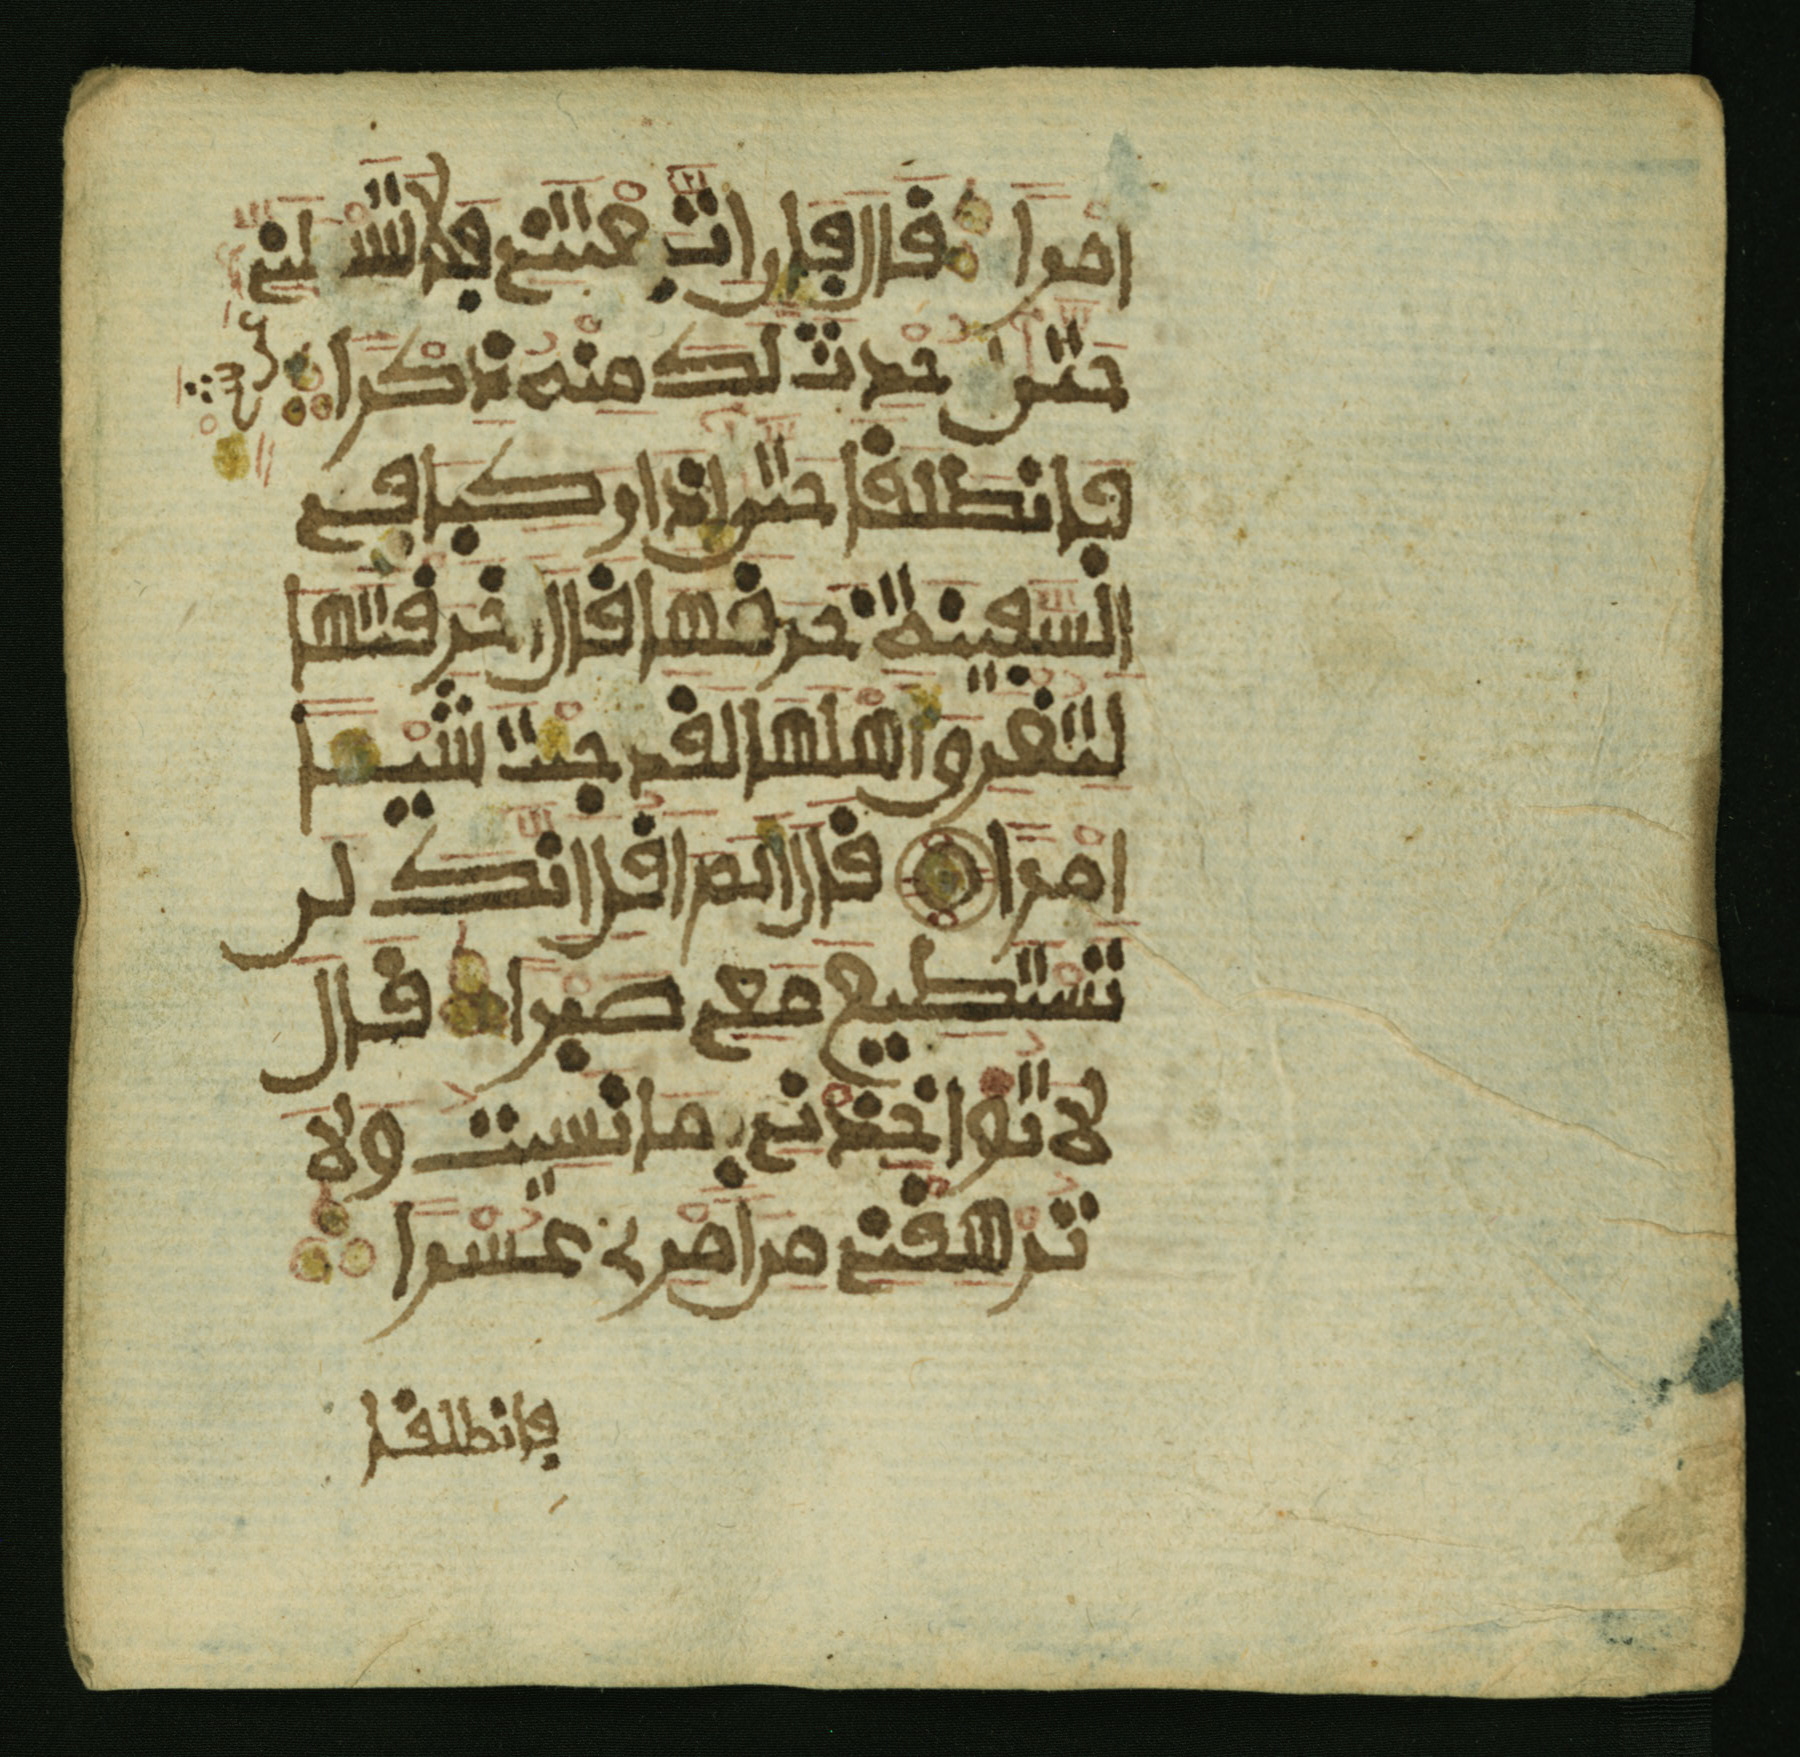 امرا قال فان اتبعتني فلا تسئلني
حتى احدث لك منه ذكرا
فانطلقا حتى اذا ركبا في
السفينة خرقها قال اخرقتها
لتغرق اهلها لقد جئت شيئا
امرا قال الم اقل انك لن
تستطيع معي صبرا قال
لا تؤاخذني بما نسيت ولا
ترهقني من امري عسرا
فانطلقا